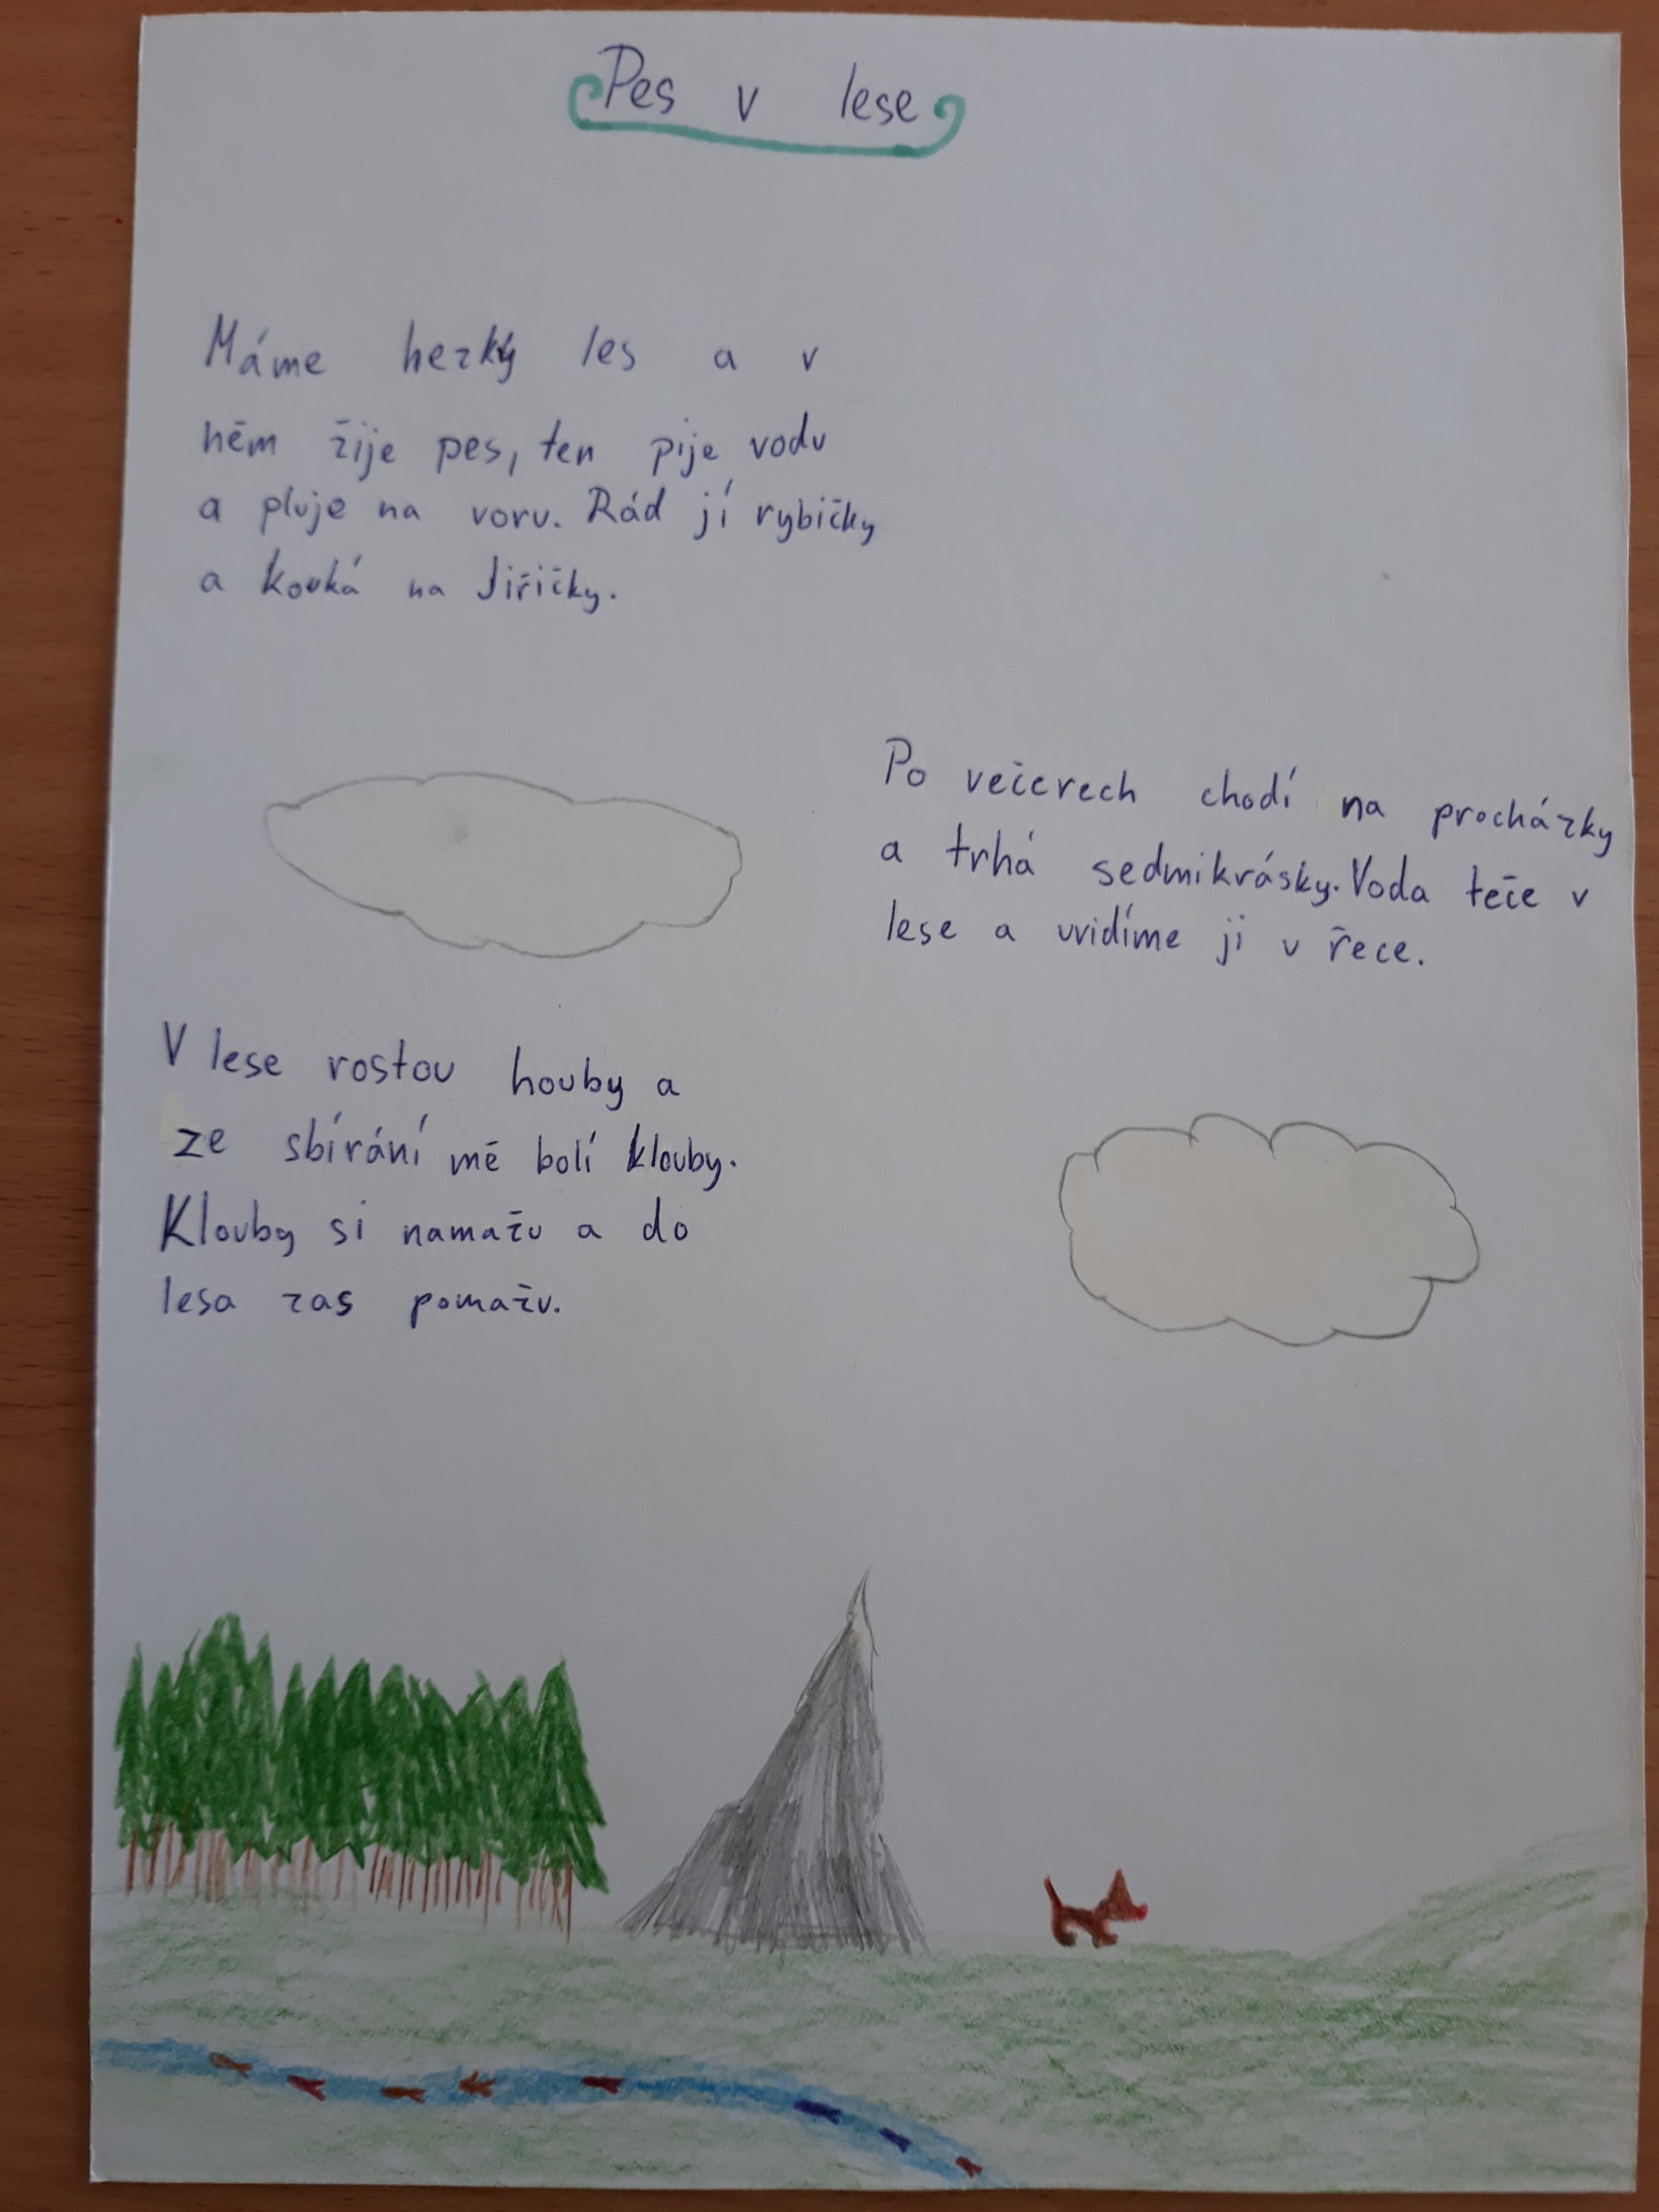 Pes v lese
Máme hezký les a v
něm žije pes, ten pije vodu
a pluje na voru. Rád jí rybičky
a kouká na Jiřičky.
Po večerech chodí na procházky
a trhá sedmikrásky. Voda teče v
lese a uvidíme ji v řece.
V lese rostou houby a
ze sbírání mě bolí klouby.
Klouby si namažu a do
lesa zas pomažu.